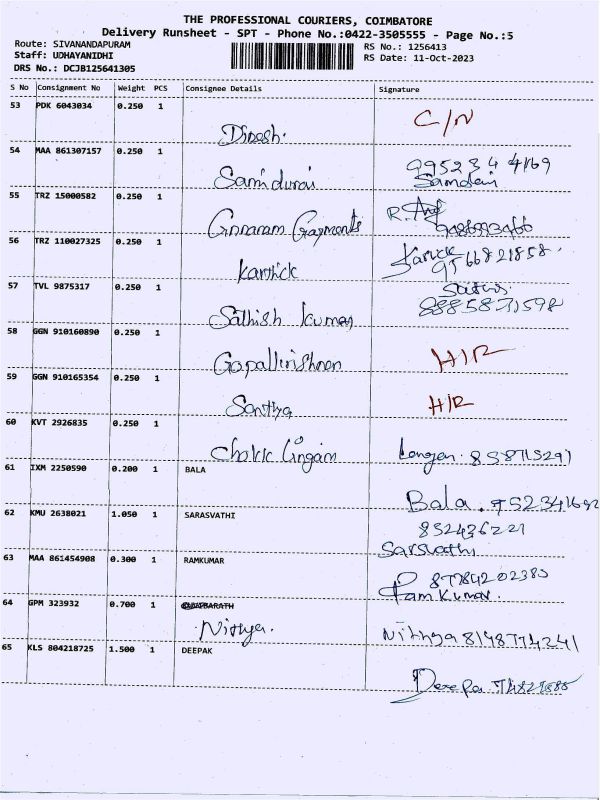 THE PROFESSIONAL COURIERS, COIMBATORE
Delivery Runsheet - SPT - Phone No.:0422-3505555 - Page No.:5
Route: SIVANANDAPURAM RS No.: 1256413
Staff: UDHAYANIDHI RS Date: 11-Oct-2023
DRS No.: DCJB125641305
S No Consignment No Weight PCS Consignee Details Signature
53 PDK 6043034 0.250 1
Dinesh. C/N
54 MAA 861307157 0.250 1 995234 4169
Samidurai Samdrai
55 TRZ 15000582 0.250 1 R.
Garments
56 TRZ 110027325 0.250 1
Karthick 9566821858.
57 TVL 9875317 0.250 1 Sathis
Sathish kumar 8885831598
58 GGN 910160890 0.250 1
Gopallirishnan H/R
59 GGN 910165354 0.250 1
Santhya H/R
60 KVT 2926835 0.250 1
Chokk lingam 858715291
61 IXM 2250590 0.200 1 BALA
Bala. 752341692
62 KMU 2638021 1.050 1 SARASVATHI 852436221
Sarsvathi
63 MAA 861454908 0.300 1 RAMKUMAR 87784202380
Ram Kumar.
64 GPM 323932 0.700 1
Nithya. Nithya 8148774241
65 KLS 804218725 1.500 1 DEEPAK
Deepa